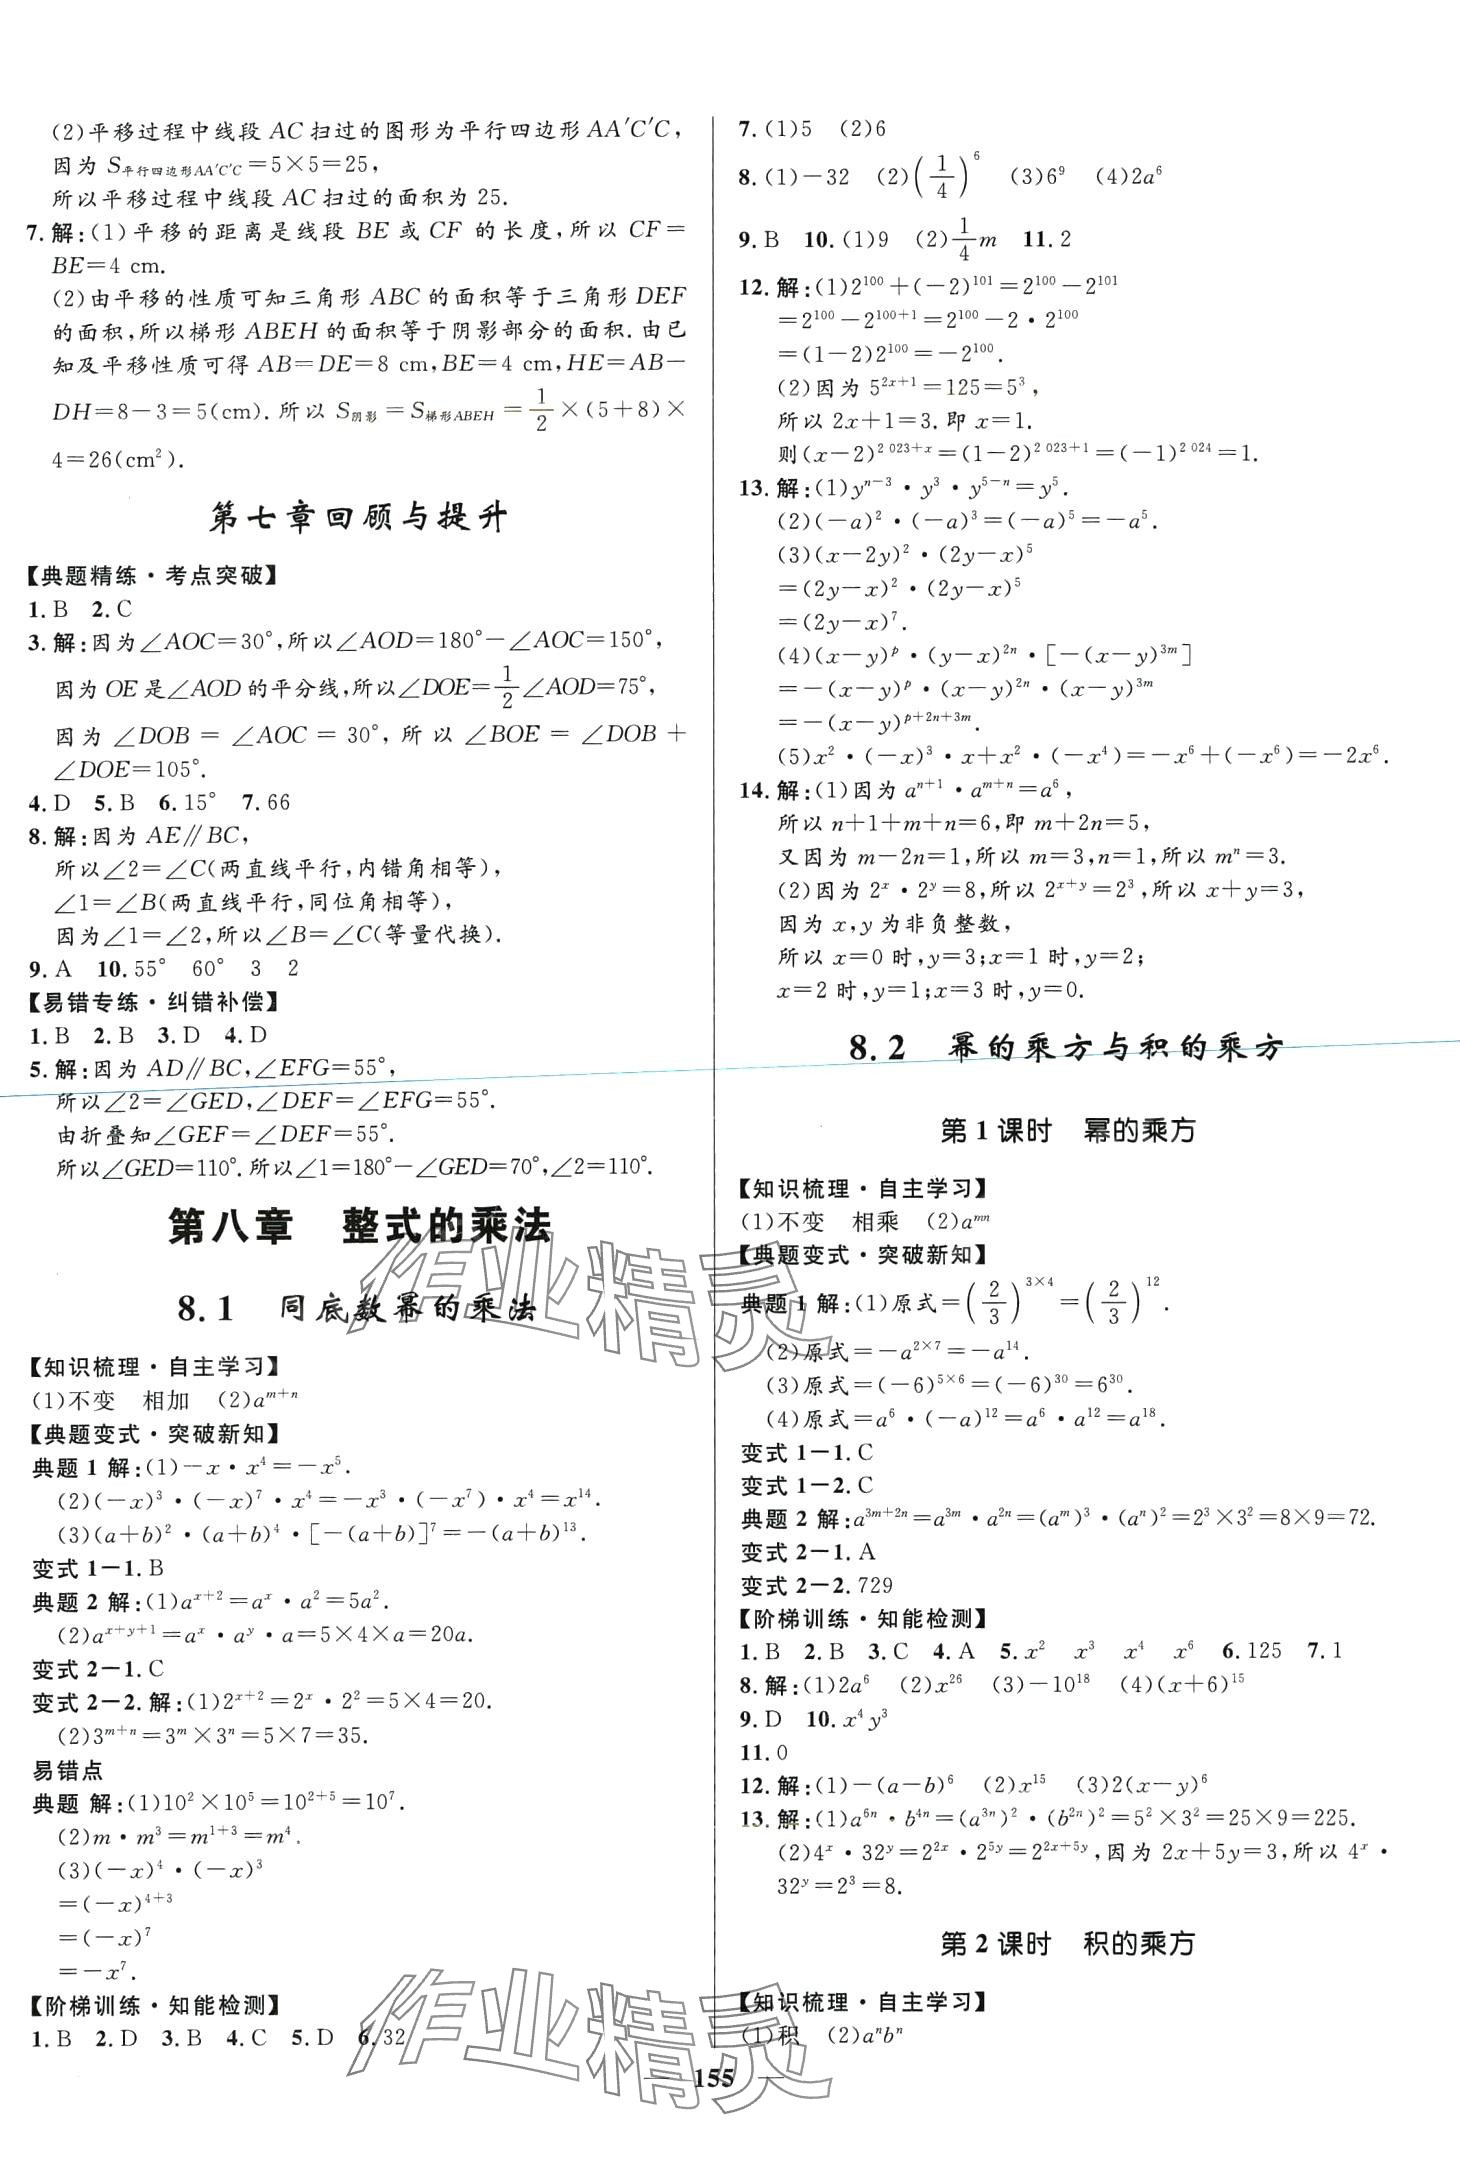 (2)平移过程中线段 AC 扫过的图形为平行四边形 AA′C′C,
因为 S平行四边形AA′C′C=5×5=25,
所以平移过程中线段 AC 扫过的面积为 25.
7.解:(1)平移的距离是线段 BE 或 CF 的长度,所以 CF=
BE=4 cm.
(2)由平移的性质可知三角形 ABC 的面积等于三角形 DEF
的面积,所以梯形 ABEH 的面积等于阴影部分的面积.由已
知及平移性质可得 AB=DE=8 cm,BE=4 cm,HE=AB−
DH=8−3=5(cm).所以 S阴影=S梯形ABEH=1/2×(5+8)×
4=26(cm²).
第七章回顾与提升
【典题精练·考点突破】
1.B 2.C
3.解:因为∠AOC=30°,所以∠AOD=180°−∠AOC=150°,
因为 OE 是∠AOD 的平分线,所以∠DOE=1/2∠AOD=75°,
因为 ∠DOB = ∠AOC = 30°,所以 ∠BOE = ∠DOB +
∠DOE=105°.
4.D 5.B 6.15° 7.66
8.解:因为 AE∥BC,
所以∠2=∠C(两直线平行,内错角相等),
∠1=∠B(两直线平行,同位角相等),
因为∠1=∠2,所以∠B=∠C(等量代换).
9.A 10.55° 60° 3 2
【易错专练·纠错补偿】
1.B 2.B 3.D 4.D
5.解:因为 AD∥BC,∠EFG=55°,
所以∠2=∠GED,∠DEF=∠EFG=55°.
由折叠知∠GEF=∠DEF=55°.
所以∠GED=110°.所以∠1=180°−∠GED=70°,∠2=110°.
第八章 整式的乘法
8.1 同底数幂的乘法
【知识梳理·自主学习】
(1)不变 相加 (2)a^{m+n}
【典题变式·突破新知】
典题 1 解:(1)−x·x⁴=−x⁵.
(2)(−x)³·(−x)⁷·x⁴=−x³·(−x⁷)·x⁴=x¹⁴.
(3)(a+b)²·(a+b)⁴·[−(a+b)]⁷=−(a+b)¹³.
变式 1−1.B
典题 2 解:(1)a^{x+2}=a^x·a²=5a².
(2)a^{x+y+1}=a^x·a^y·a=5×4×a=20a.
变式 2−1.C
变式 2−2.解:(1)2^{x+2}=2^x·2²=5×4=20.
(2)3^{m+n}=3^m×3^n=5×7=35.
易错点
典题 解:(1)10²×10⁵=10^{2+5}=10⁷.
(2)m·m³=m^{1+3}=m⁴.
(3)(−x)⁴·(−x)³
=(−x)^{4+3}
=(−x)⁷
=−x⁷.
【阶梯训练·知能检测】
1.B 2.D 3.B 4.C 5.D 6.32
7.(1)5 (2)6
8.(1)−32 (2)(1/4)⁶ (3)6⁹ (4)2a⁶
9.B 10.(1)9 (2)1/4m 11.2
12.解:(1)2¹⁰⁰+(−2)¹⁰¹=2¹⁰⁰−2¹⁰¹
=2¹⁰⁰−2^{100+1}=2¹⁰⁰−2·2¹⁰⁰
=(1−2)2¹⁰⁰=−2¹⁰⁰.
(2)因为 5^{2x+1}=125=5³,
所以 2x+1=3.即 x=1.
则(x−2)^{2 023+x}=(1−2)^{2 023+1}=(−1)^{2 024}=1.
13.解:(1)y^{n−3}·y³·y^{5−n}=y⁵.
(2)(−a)²·(−a)³=(−a)⁵=−a⁵.
(3)(x−2y)²·(2y−x)⁵
=(2y−x)²·(2y−x)⁵
=(2y−x)⁷.
(4)(x−y)^p·(y−x)^{2n}·[−(x−y)^{3m}]
=−(x−y)^p·(x−y)^{2n}·(x−y)^{3m}
=−(x−y)^{p+2n+3m}.
(5)x²·(−x)³·x+x²·(−x⁴)=−x⁶+(−x⁶)=−2x⁶.
14.解:(1)因为 a^{n+1}·a^{m+n}=a⁶,
所以 n+1+m+n=6,即 m+2n=5,
又因为 m−2n=1,所以 m=3,n=1,所以 m^n=3.
(2)因为 2^x·2^y=8,所以 2^{x+y}=2³,所以 x+y=3,
因为 x,y 为非负整数,
所以 x=0 时,y=3;x=1 时,y=2;
x=2 时,y=1;x=3 时,y=0.
8.2 幂的乘方与积的乘方
第 1 课时 幂的乘方
【知识梳理·自主学习】
(1)不变 相乘 (2)a^{mn}
【典题变式·突破新知】
典题 1 解:(1)原式=(2/3)^{3×4}=(2/3)¹².
(2)原式=−a^{2×7}=−a¹⁴.
(3)原式=(−6)^{5×6}=(−6)³⁰=6³⁰.
(4)原式=a⁶·(−a)¹²=a⁶·a¹²=a¹⁸.
变式 1−1.C
变式 1−2.C
典题 2 解:a^{3m+2n}=a^{3m}·a^{2n}=(a^m)³·(a^n)²=2³×3²=8×9=72.
变式 2−1.A
变式 2−2.729
【阶梯训练·知能检测】
1.B 2.B 3.C 4.A 5.x² x³ x⁴ x⁶ 6.125 7.1
8.解:(1)2a⁶ (2)x²⁶ (3)−10¹⁸ (4)(x+6)¹⁵
9.D 10.x⁴y³
11.0
12.解:(1)−(a−b)⁶ (2)x¹⁵ (3)2(x−y)⁶
13.解:(1)a^{6n}·b^{4n}=(a^{3n})²·(b^{2n})²=5²×3²=25×9=225.
(2)4^x·32^y=2^{2x}·2^{5y}=2^{2x+5y},因为 2x+5y=3,所以 4^x·
32^y=2³=8.
第 2 课时 积的乘方
【知识梳理·自主学习】
(1)积 (2)a^n b^n
作业精灵
作业精灵
— 155 —